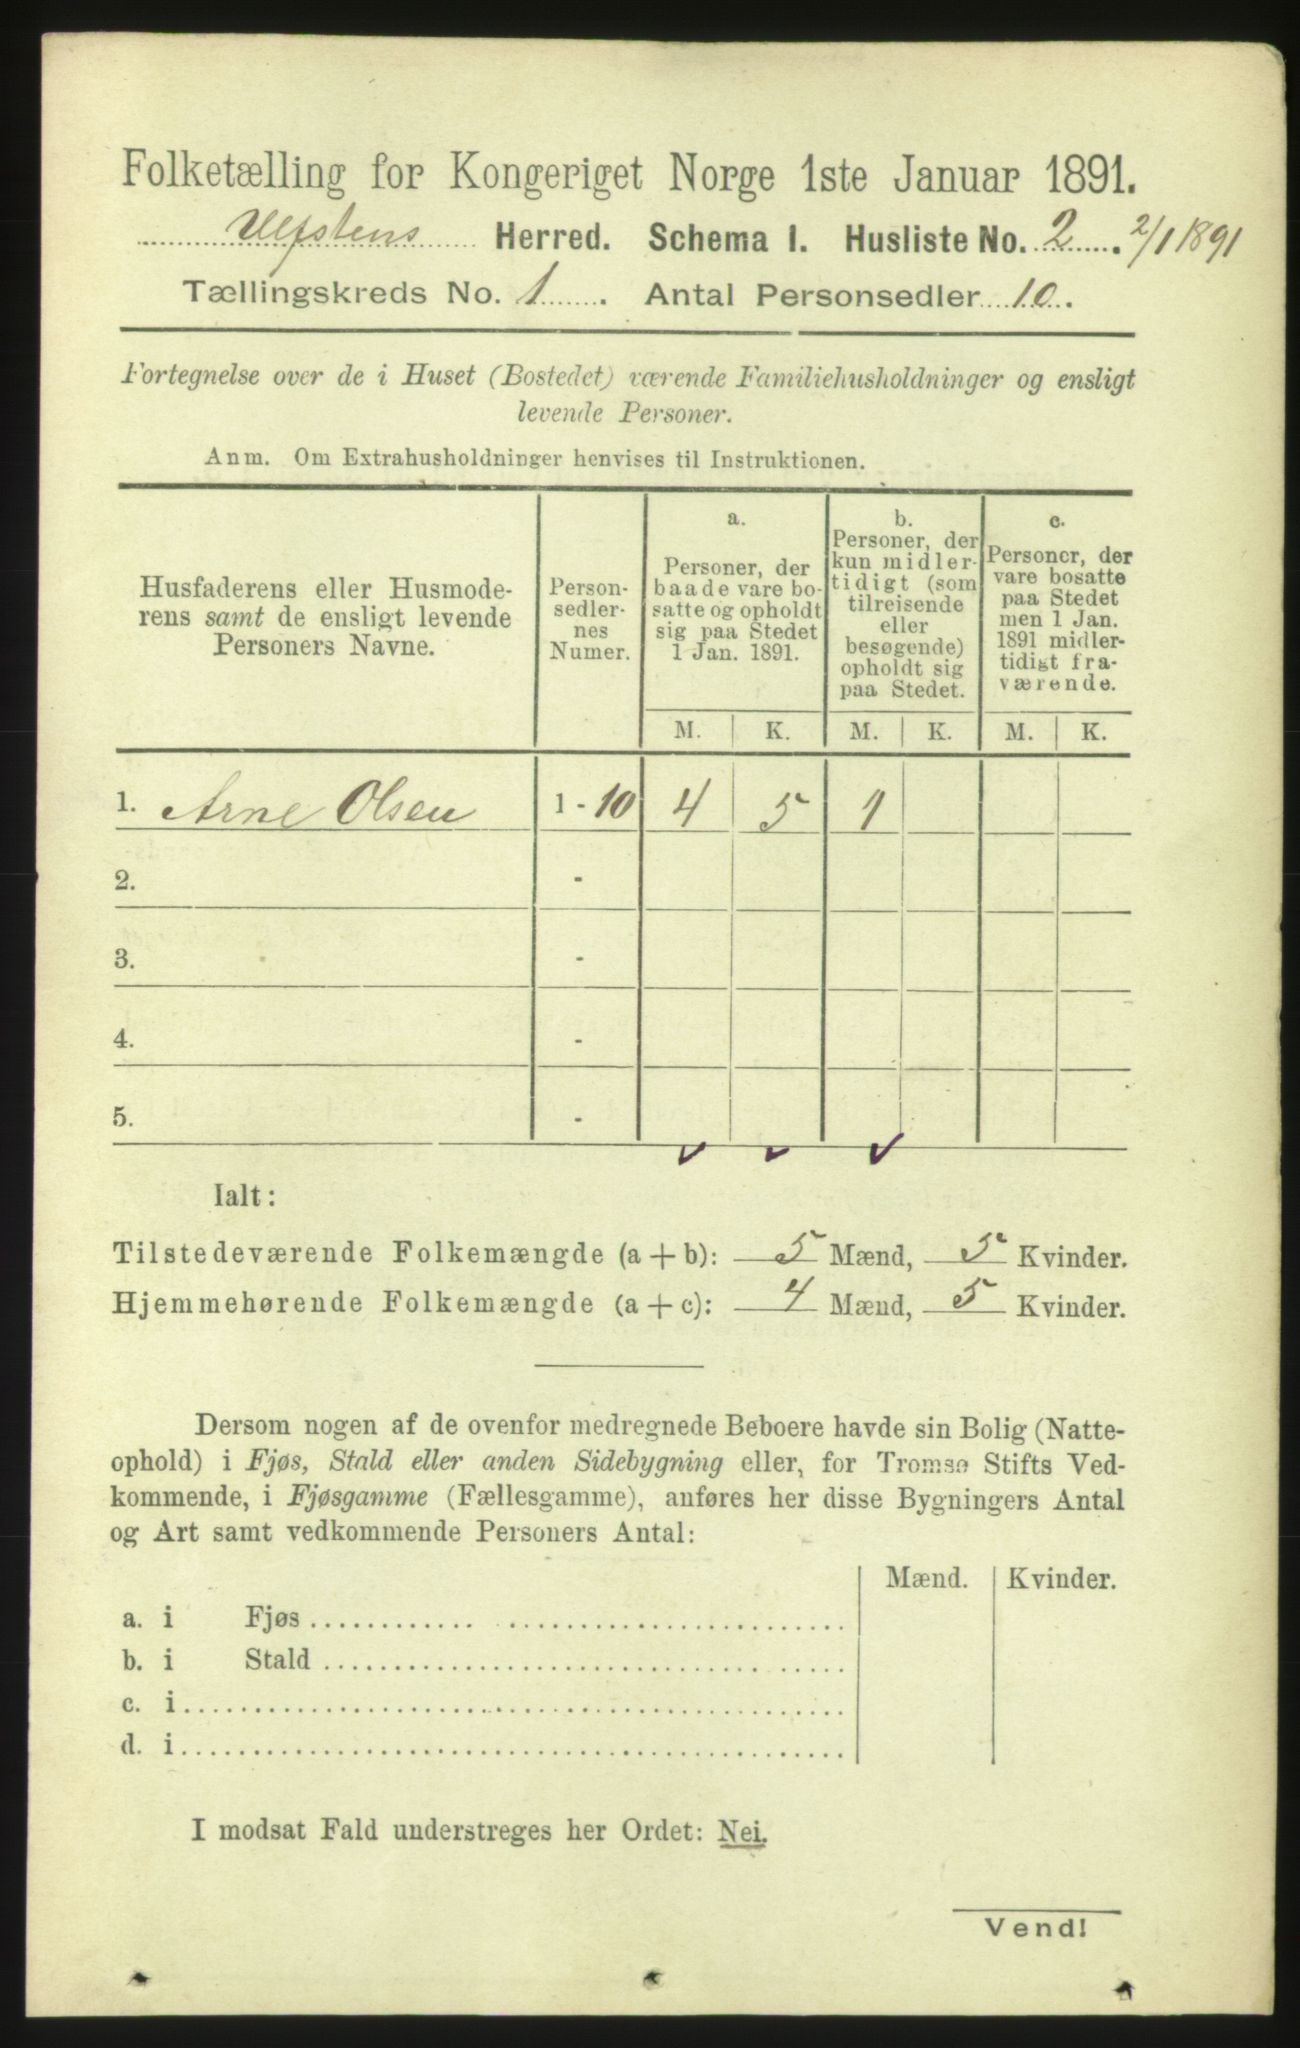 Folketælling for Kongeriget Norge 1ste Januar 1891.
Ulfstens Herred. Schema I. Husliste No. 2. 2/1 1891
Tællingskreds No. 1. Antal Personsedler 10.
Fortegnelse over de i Huset (Bostedet) værende Familiehusholdninger og ensligt
levende Personer.
Anm. Om Extrahusholdninger henvises til Instruktionen.
Husfaderens eller Husmode-
rens samt de ensligt levende
Personers Navne.
Person-
sedler-
nes
Numer.
a.
Personer, der
baade vare bo-
satte og opholdt
sig paa Stedet
1 Jan. 1891.
b.
Personer, der
kun midler-
tidigt (som
tilreisende
eller
besøgende)
opholdt sig
paa Stedet.
c.
Personer, der
vare bosatte
paa Stedet
men 1 Jan.
1891 midler-
tidigt fra-
værende.
M. K. M. K. M. K.
1. Arne Olsen 1 - 10 4 5 1
2. -
3. -
4. -
5. -
Ialt:
Tilstedeværende Folkemængde (a + b): 5 Mænd, 5 Kvinder.
Hjemmehørende Folkemængde (a + c): 4 Mænd, 5 Kvinder.
Dersom nogen af de ovenfor medregnede Beboere havde sin Bolig (Natte-
ophold) i Fjøs, Stald eller anden Sidebygning eller, for Tromsø Stifts Ved-
kommende, i Fjøsgamme (Fællesgamme), anføres her disse Bygningers Antal
og Art samt vedkommende Personers Antal:
Mænd. Kvinder.
a. i Fjøs
b. i Stald
c. i
d. i
I modsat Fald understreges her Ordet: Nei.
Vend!